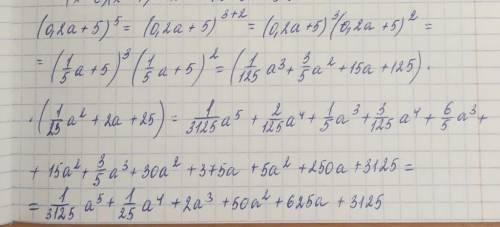 (0,2a+5)^5 = (0,2a+5)^{3+2} = (0,2a+5)^3 (0,2a+5)^2 =
= (1/5 a+5)^3 (1/5 a+5)^2 = (1/125 a^3 + 3/5 a^2 + 15a + 125) ·
· (1/25 a^2 + 2a + 25) = 1/3125 a^5 + 2/125 a^4 + 1/5 a^3 + 3/125 a^4 + 6/5 a^3 +
+ 15a^2 + 3/5 a^3 + 30a^2 + 375a + 5a^2 + 250a + 3125 =
= 1/3125 a^5 + 1/25 a^4 + 2a^3 + 50a^2 + 625a + 3125